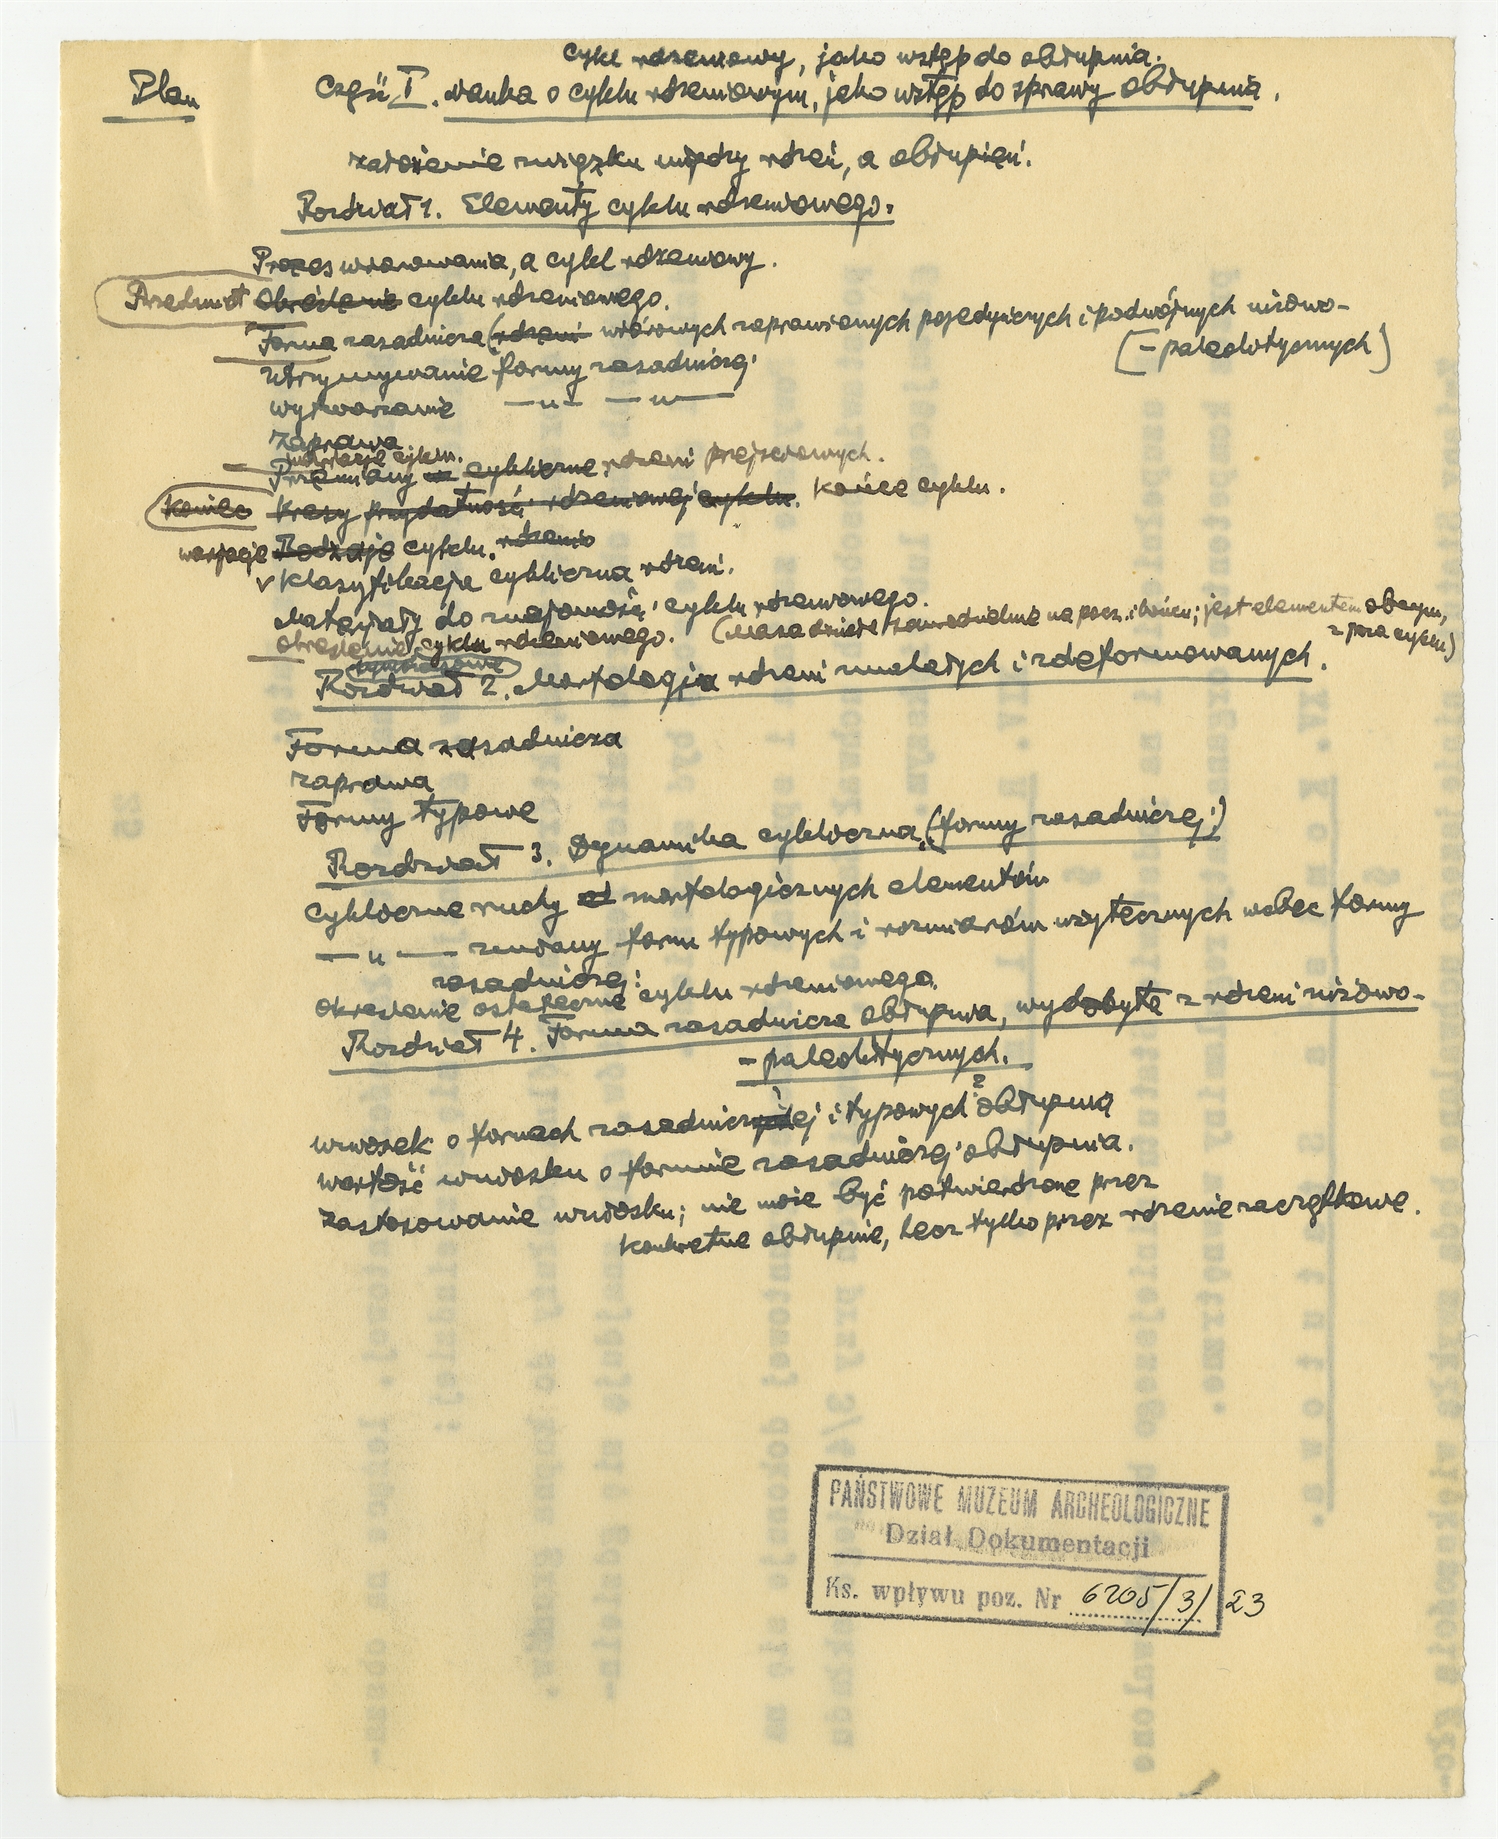 cykl rdzeniowy, jako wstęp do obłupnia.
Plan
Część I. Nauka o cyklu rdzeniowym, jako wstęp do sprawy obłupnia.
założenie związku między rdzeń, a obłupień.
Rozdział 1. Elementy cyklu rdzeniowego.
Proces wiórowania, a cykl rdzeniowy.
Przedmiot określenie cyklu rdzeniowego.
Forma zasadnicza (rdzeni wiórowych zaprawianych pojedyńczych i podwójnych niżowo-
(-paleolitycznych)
utrzymywanie formy zasadniczej
wytwarzanie —„— —„—
Zaprawa
wariacje cyklu.
Przemiany cykliczne rdzeni przejściowych.
Koniec kresy przydatność rdzeniowej cyklu. Końce cyklu.
wariacje Rodzaje cyklu. rdzenia
v Klasyfikacja cykliczna rdzeni.
Materiały do znajomości cyklu rdzeniowego.
określenie cyklu rdzeniowego. (Masa dzieło zawodzielnie na pocz. i końcu; jest elementem obcym,
z poza cyklu)
Rozdział 2. Morfologia rdzeni znalezionych i zdeformowanych.
Forma zasadnicza
zaprawa
Formy typowe
Rozdział 3. Dynamika cykliczna (formy zasadniczej)
Cykliczne ruchy morfologicznych elementów
—„— zmiany form typowych i rozmiarów użytecznych wobec formy
zasadniczej.
określenie ostateczne cyklu rdzeniowego.
Rozdział 4. Forma zasadnicza obłupnia, wydobyta z rdzeni niżowo-
-paleolitycznych.
wniosek o formach zasadniczej i typowych obłupnia
wartość wniosku o formie zasadniczej obłupnia.
Zastosowanie wniosku; nie może być potwierdzone przez
konkretne obłupnie, lecz tylko przez rdzenie zaczątkowe.
PAŃSTWOWE MUZEUM ARCHEOLOGICZNE
Dział Dokumentacji
Ks. wpływu poz. Nr 6205/3/23